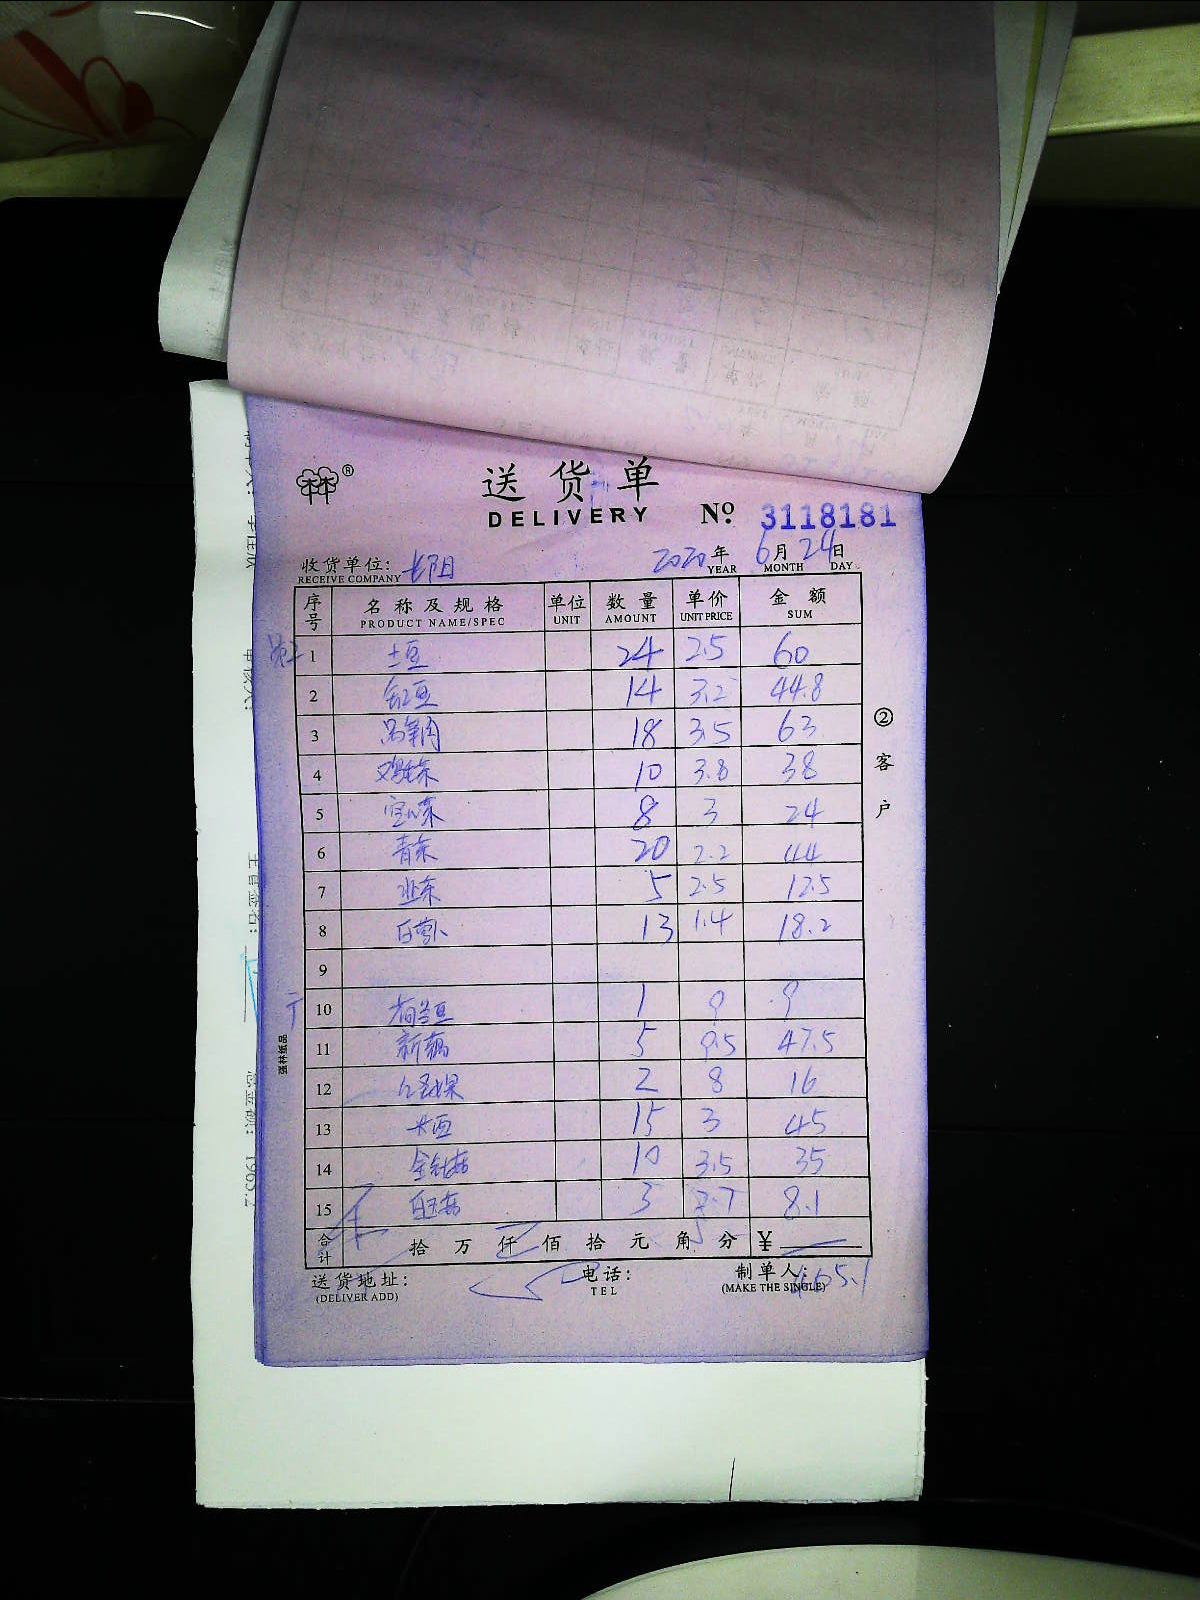 送货单
DELIVERY
№ 3118181
收货单位: 长阳 2020年 6月 24日
RECEIVE COMPANY YEAR MONTH DAY
序号 名称及规格 单位 数量 单价 金额
PRODUCT NAME/SPEC UNIT AMOUNT UNIT PRICE SUM
1 土豆 24 2.5 60
2 缸豆 14 3.2 44.8
3 18 3.5 63
4 10 3.8 38
5 空心菜 8 3 24
6 青菜 20 2.2 44
7 韭菜 5 2.5 12.5
8 白萝卜 13 1.4 18.2
9
10 1 9 9
11 新藕 5 9.5 47.5
12 2 8 16
13 15 3 45
14 金针菇 10 3.5 35
15 白玉菇 3 2.7 8.1
合计 拾 万 仟 佰 拾 元 角 分 ¥
465.1
送货地址: 电话: 制单人:
(DELIVER ADD) TEL (MAKE THE SINGLE)
② 客户
强林纸品
主管签名:
总金额: 1965.2